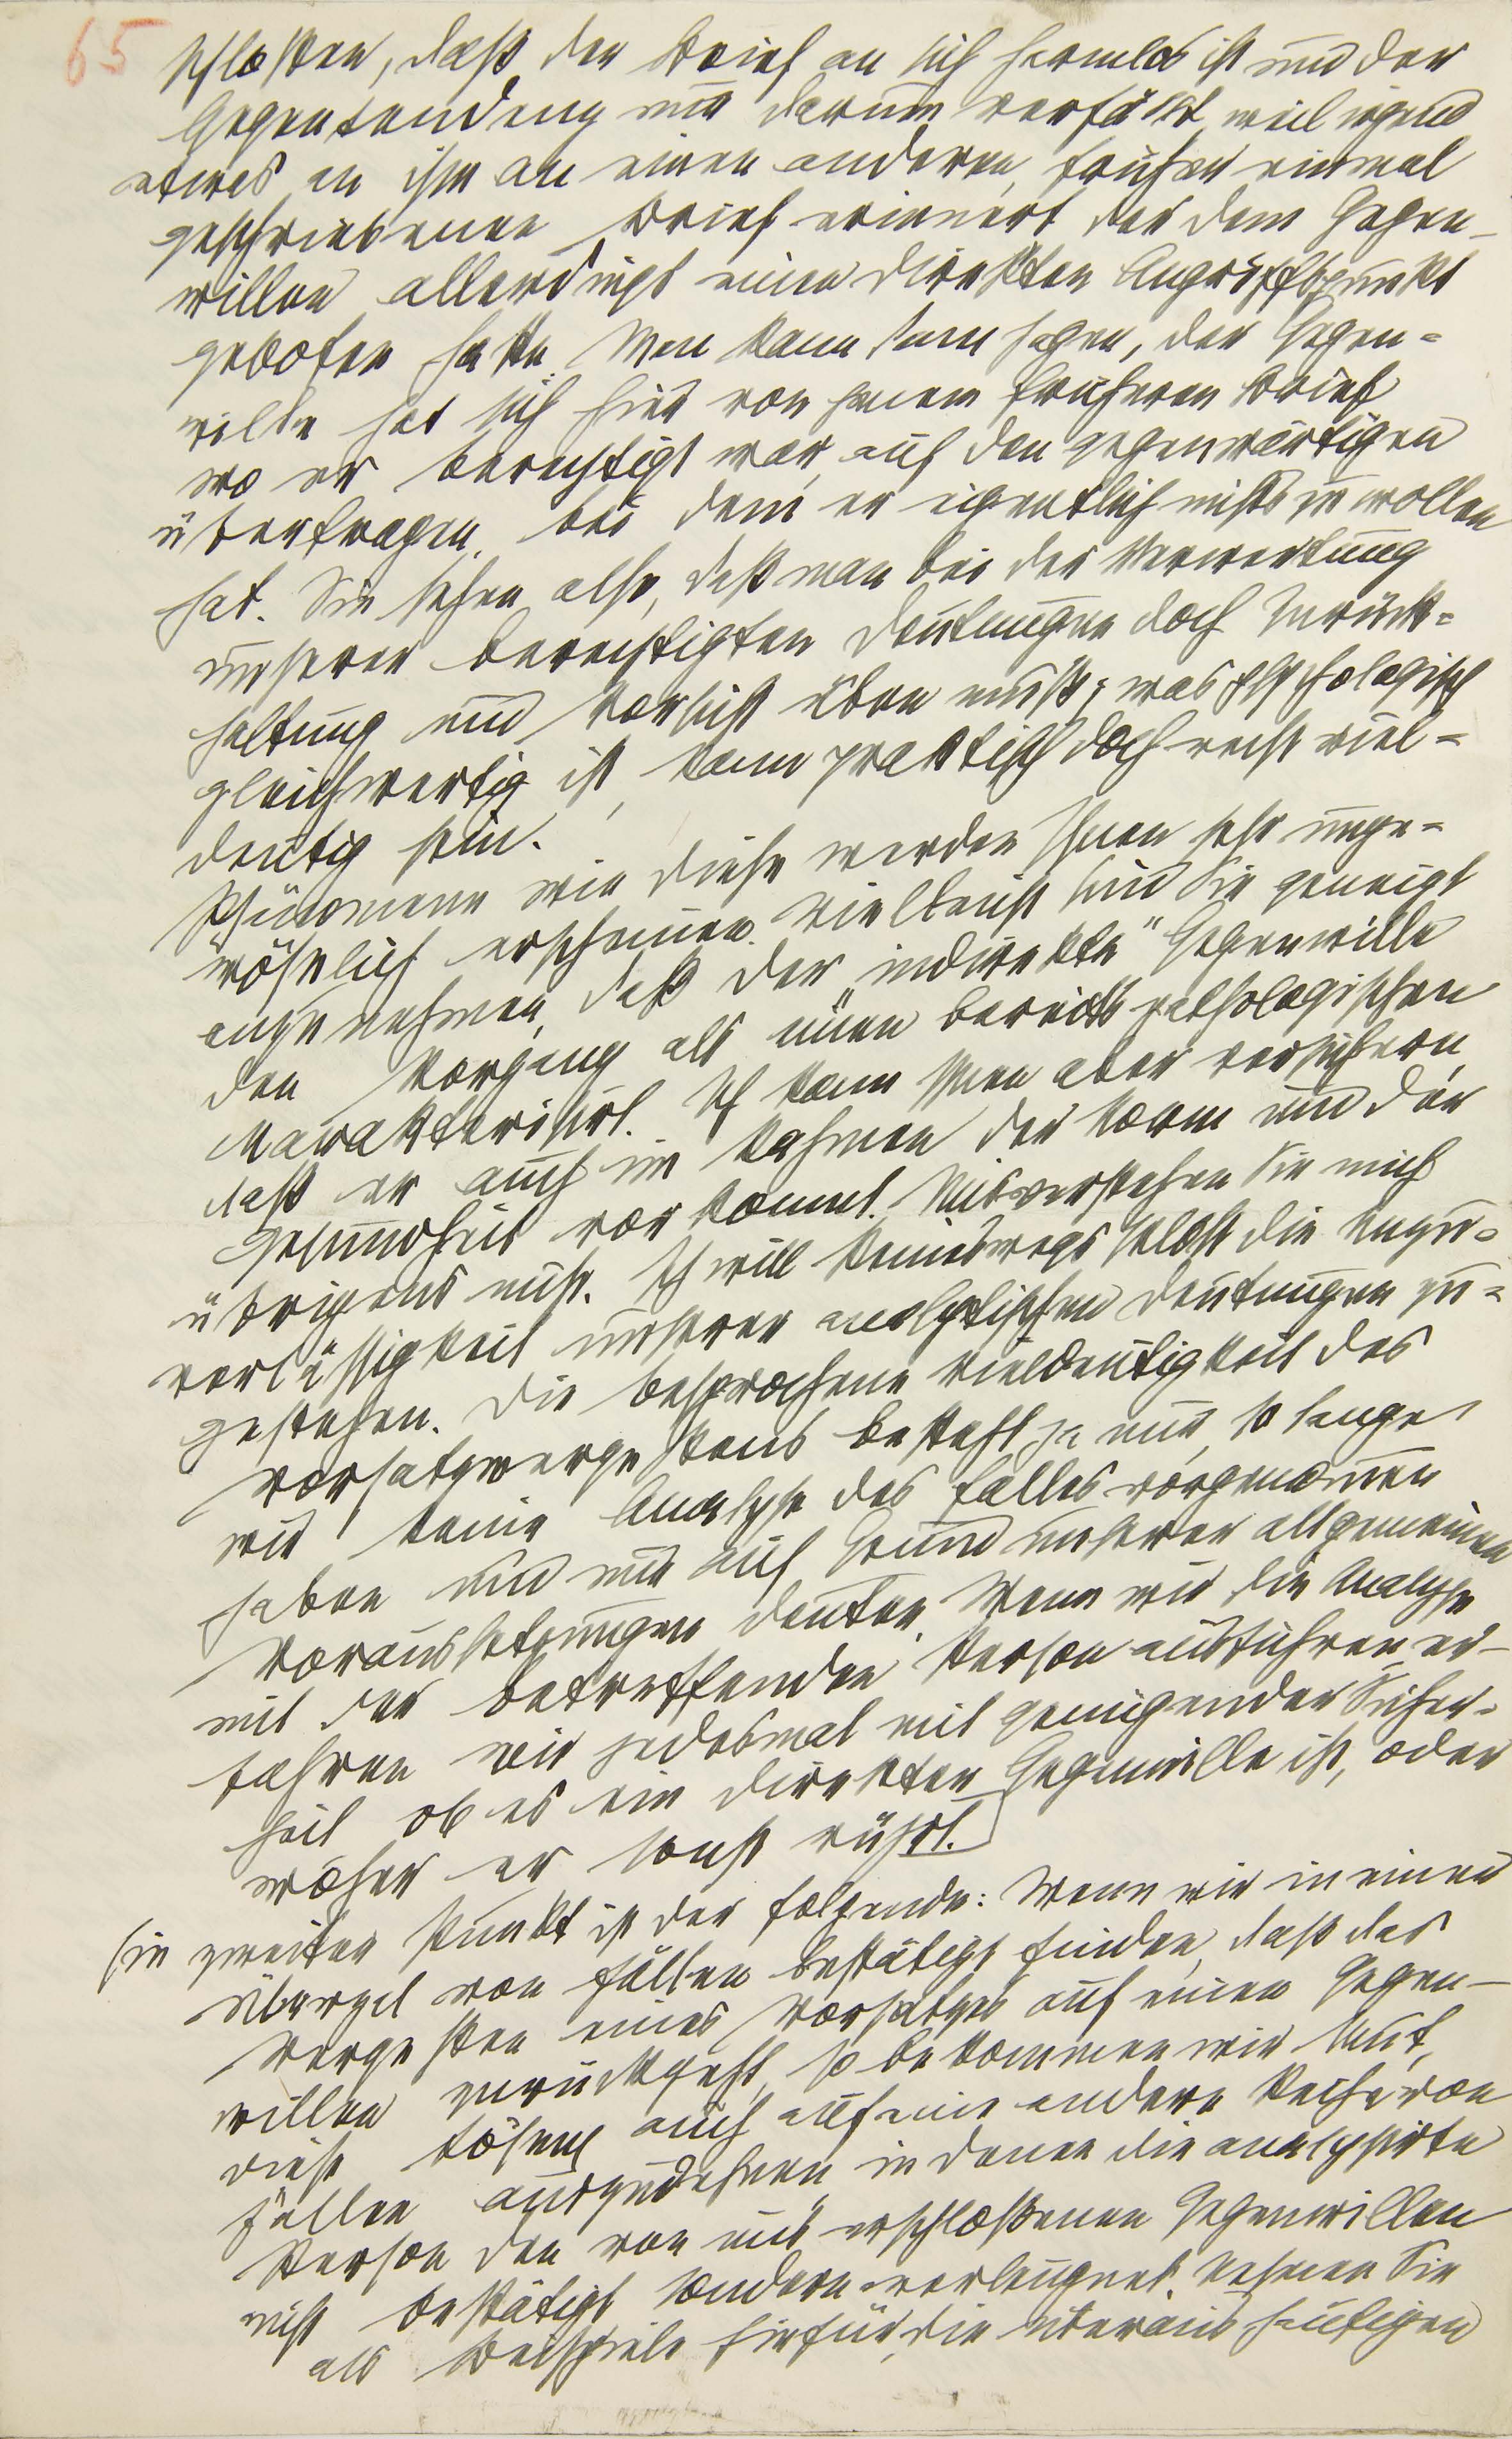 65
schloßen, daß der Brief an sich harmlos ist und der
Gegensendung nur darum verfällt, weil irgend
etwas an ihm an einen anderen, früher einmal
geschriebenen Brief erinnert der dem Gegen-
willen allerdings einen direkten Angriffspunkt
geboten hatte. Man kann dann sagen, der Gegen-
wille hat sich hier von jenem früheren Brief
wo er berechtigt war, auf den gegenwärtigen
übertragen, bei dem er eigentlich nichts zu wollen
hat. Sie sehen also, daß man bei der Verwertung
unserer berechtigten Deutungen doch Zurück-
haltung und Vorsicht üben muß; was psychologisch
gleichwertig ist, kann praktisch doch recht viel-
deutig sein.
Phänomene wie diese werden Ihnen sehr unge-
wöhnlich erscheinen. Vielleicht sind Sie geneigt
anzunehmen, daß der „indirekte" Gegenwille
den Vorgang als einen bereits pathologischen
charakterisirt. Ich kann Ihnen aber versichern,
daß er auch im Rahmen der Norm und der
Gesundheit vorkommt. Misverstehen Sie mich
übrigens nicht. Ich will keineswegs selbst die Unzu-
verlässigkeit unserer analytischen Deutungen zu-
gestehen. Die besprochene Vieldeutigkeit des
Vorsatzvergeßens besteht ja nur, so lange
wir keine Analyse des Falles vorgenommen
haben und nur auf Grund unserer allgemeinen
Voraussetzungen deuten. Wenn wir die Analyse
mit der betreffenden Person ausführen, er-
fahren wir jedesmal mit genügender Sicher-
heit, ob es ein direkter Gegenwille ist, oder
woher er sonst rührt.
Ein zweiter Punkt ist der folgende: Wenn wir in einer
Überzal von Fällen bestätigt finden, daß das
Vergeßen eines Vorsatzes auf einen Gegen-
willen zurückgeht, so bekommen wir Mut,
diese Lösung auch auf eine andere Reihe von
Fällen auszudehnen, in denen die analysirte
Person den von uns erschloßenen Gegenwillen
nicht bestätigt, sondern verleugnet. Nehmen Sie
als Beispiele hiefür, die überaus häufigen